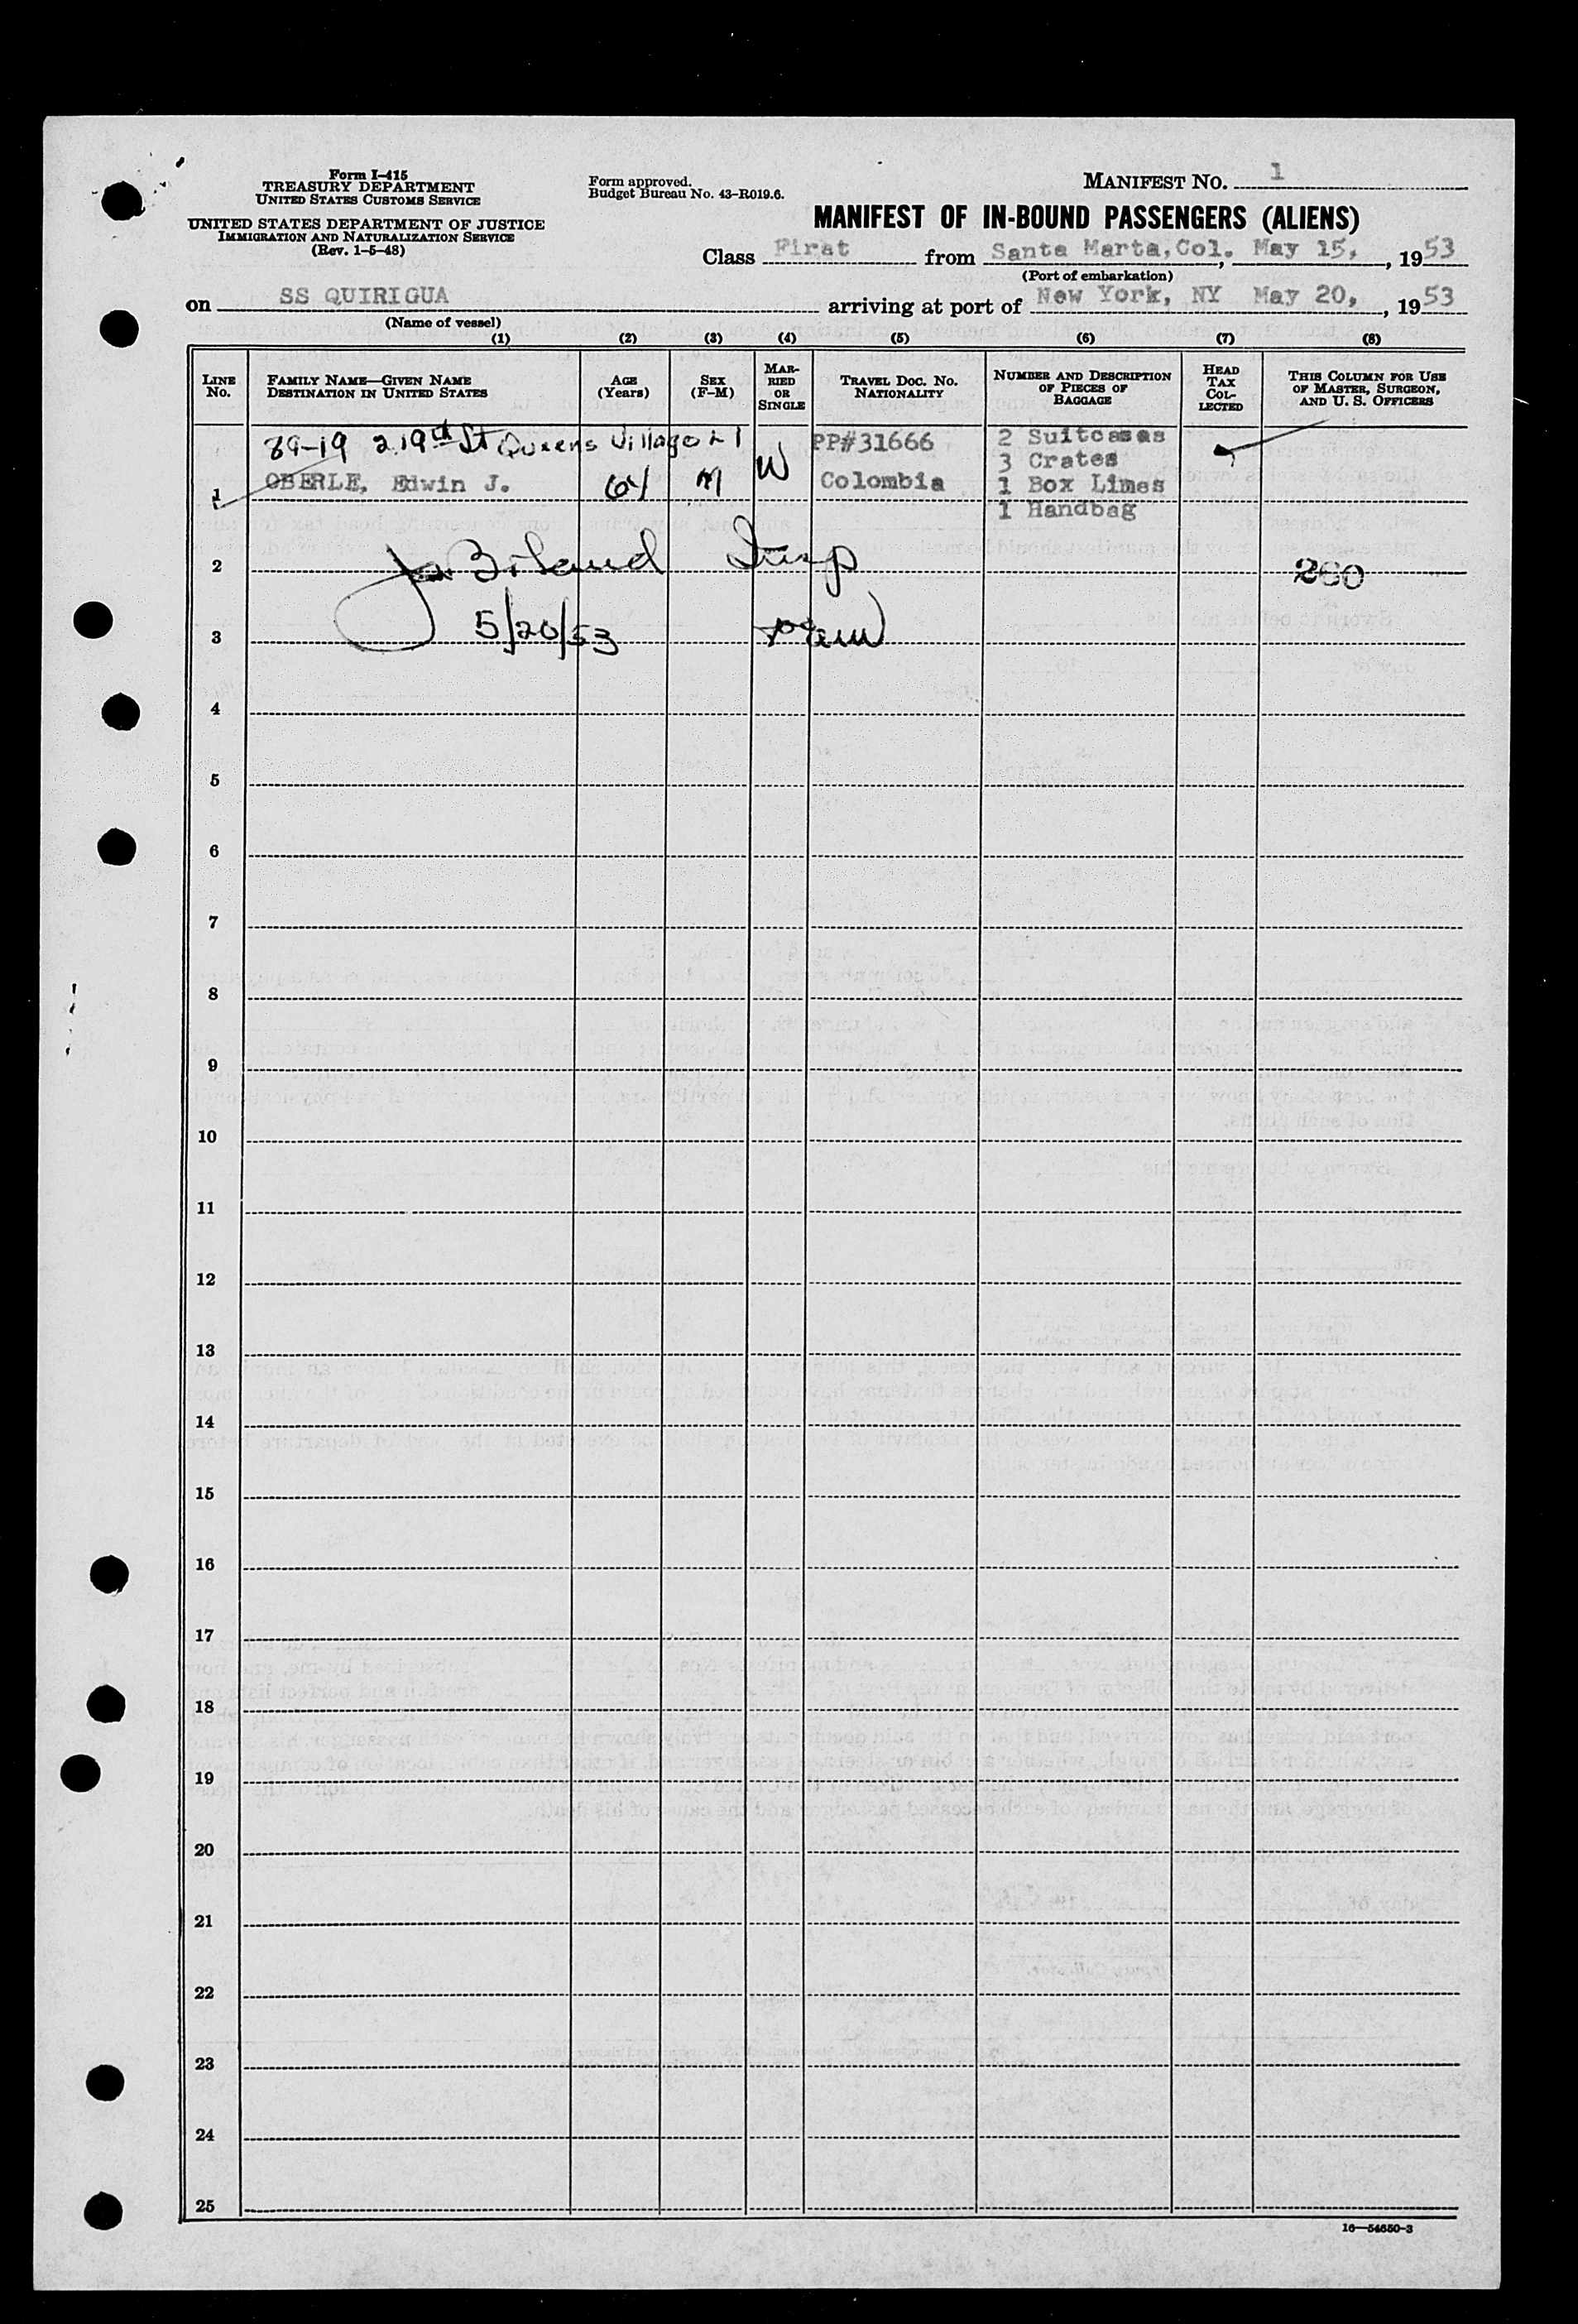 Form I-415
TREASURY DEPARTMENT
UNITED STATES CUSTOMS SERVICE
UNITED STATES DEPARTMENT OF JUSTICE
IMMIGRATION AND NATURALIZATION SERVICE
(Rev. 1-5-48)
Form approved.
Budget Bureau No. 43-R019.6.
MANIFEST NO. 1
MANIFEST OF IN-BOUND PASSENGERS (ALIENS)
Class First from Santa Marta, Col., May 15, , 1953
(Port of embarkation)
on SS QUIRIGUA arriving at port of New York, NY May 20, , 1953
(Name of vessel)
(1) (2) (3) (4) (5) (6) (7) (8)
LINE No. FAMILY NAME—GIVEN NAME DESTINATION IN UNITED STATES AGE (Years) SEX (F-M) MARRIED OR SINGLE TRAVEL DOC. NO. NATIONALITY NUMBER AND DESCRIPTION OF PIECES OF BAGGAGE HEAD TAX COLLECTED THIS COLUMN FOR USE OF MASTER, SURGEON, AND U. S. OFFICERS
89-19 219th St Queens Village L I PP#31666 2 Suitcases
3 Crates
1 OBERLE, Edwin J. 64 M W Colombia 1 Box Limes
1 Handbag
2 Insp 260
3 5/20/53
4
5
6
7
8
9
10
11
12
13
14
15
16
17
18
19
20
21
22
23
24
25
16—54650-3